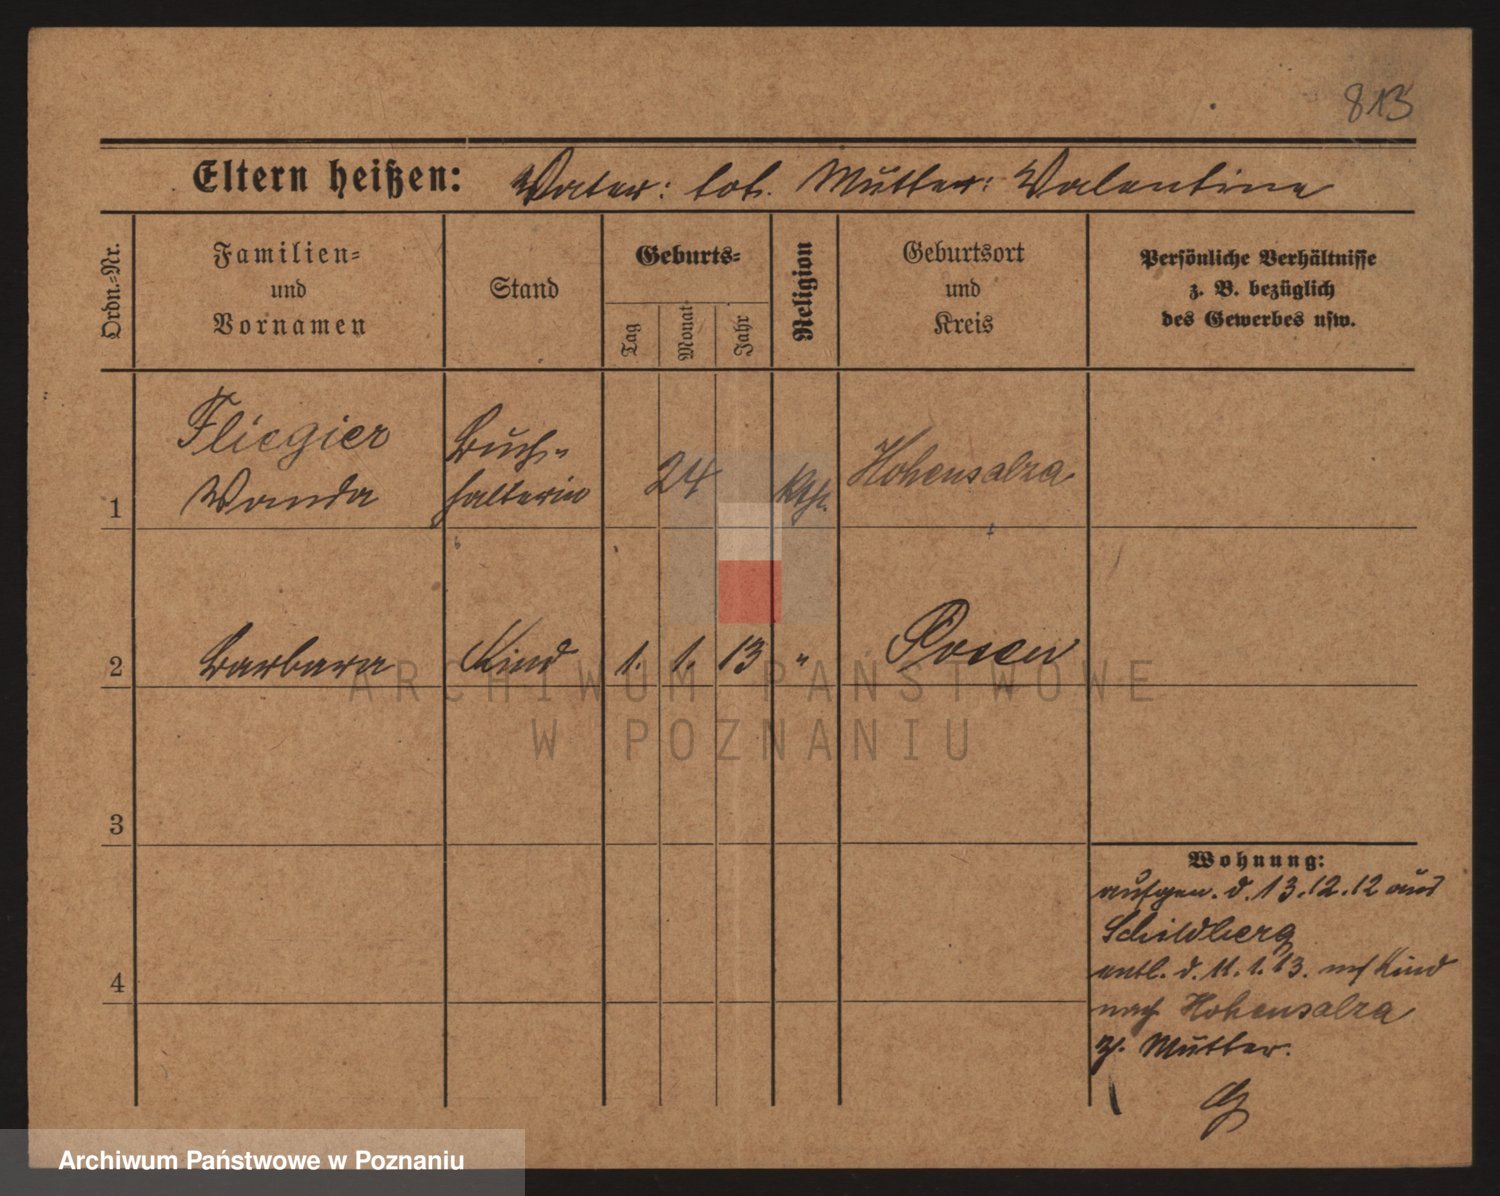 813
Eltern heißen: Vater: tot. Mutter: Valentine
Ordn.-Nr.
Familien-
und
Vornamen
Stand
Geburts-
Tag
Monat
Jahr
Religion
Geburtsort
und
Kreis
Persönliche Verhältnisse
z. B. bezüglich
des Gewerbes usw.
1
Fliegier
Wanda
Buch-
halterin
24
kth.
Hohensalza
2
Barbara
Kind
1.
1.
13
"
Posen
3
4
Wohnung:
aufgen. d. 13.12.12 aus
Schildberg
entl. d. 11.1.13. m/ Kind
nach Hohensalza
z. Mutter.
ARCHIWUM PAŃSTWOWE
W POZNANIU
Archiwum Państwowe w Poznaniu